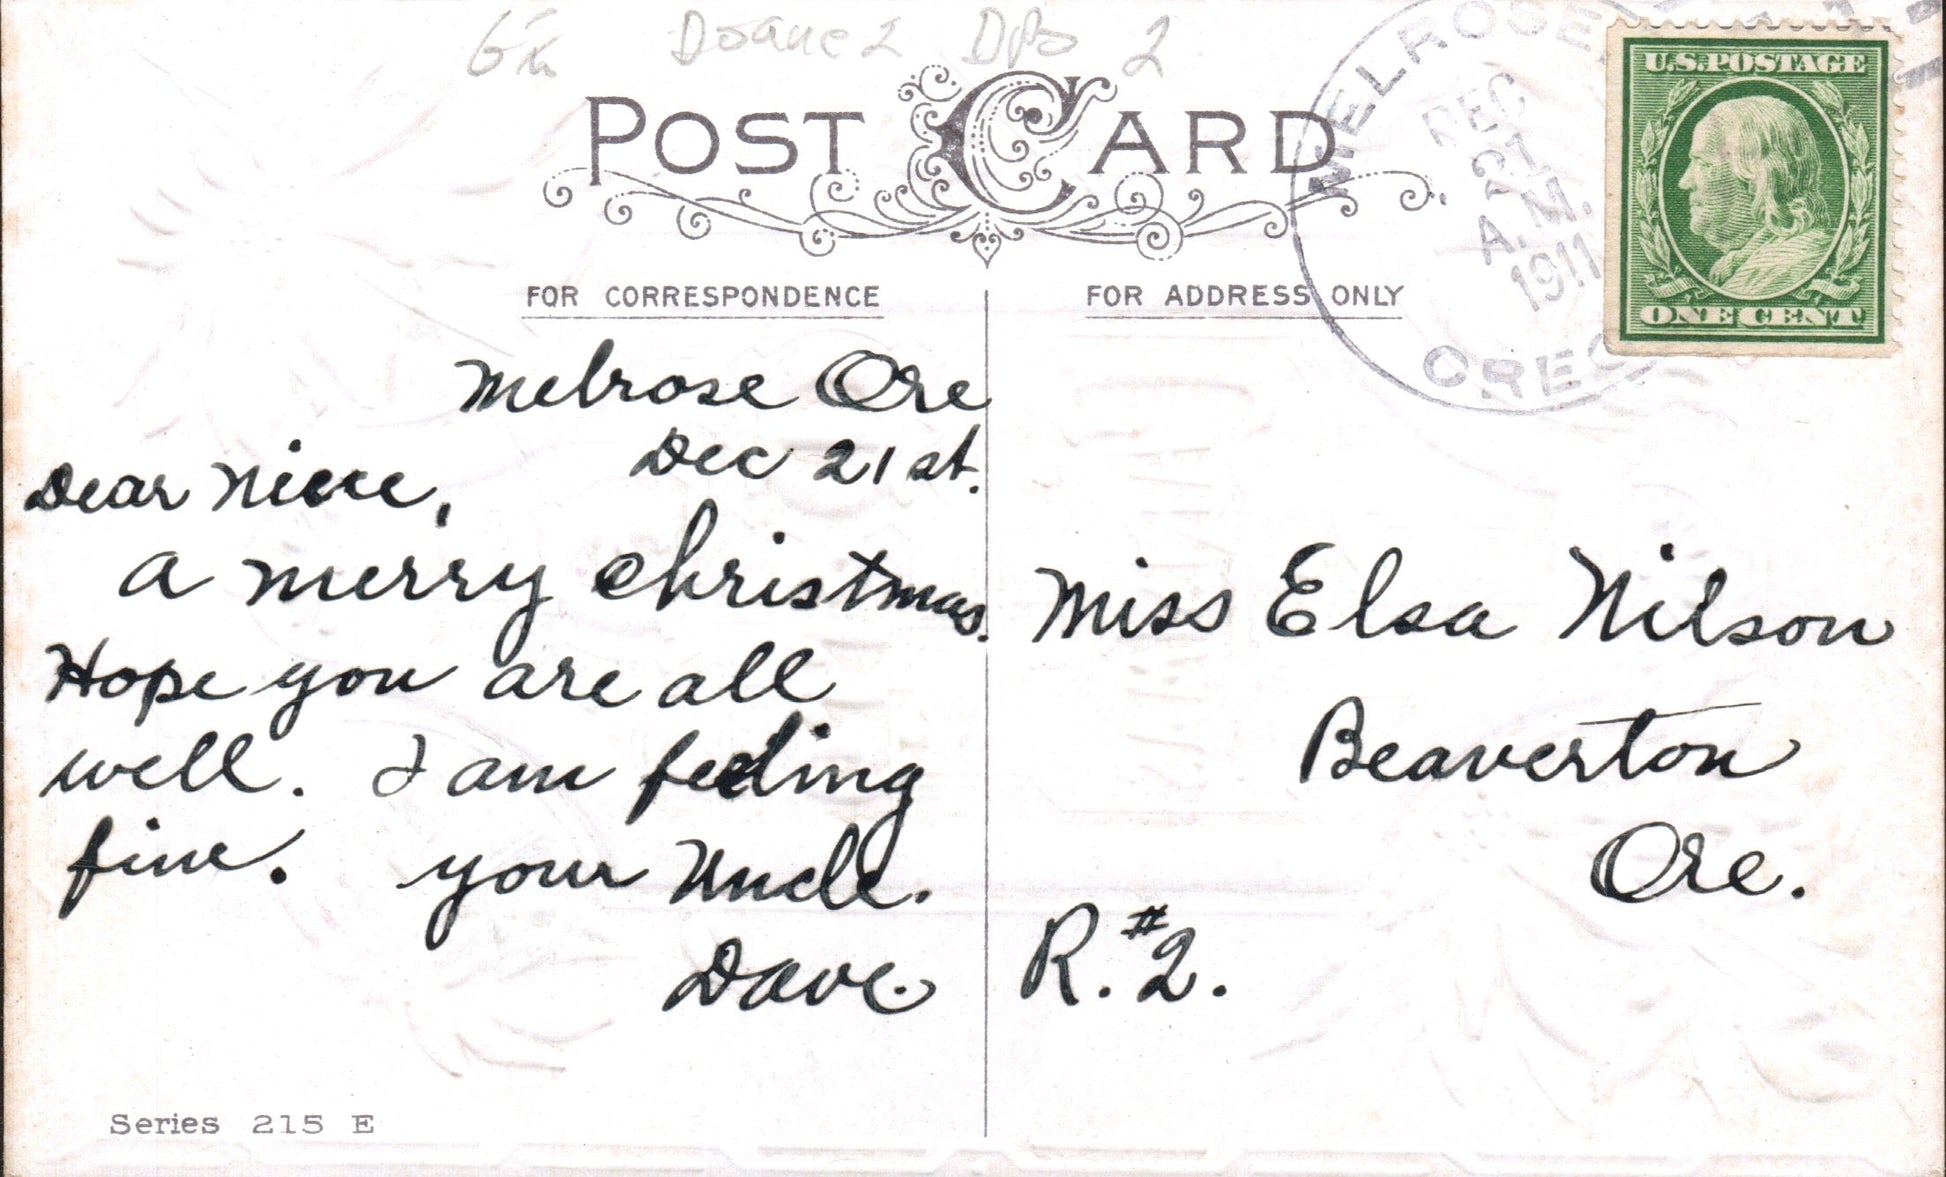 Doane 2 DPO 2
POST CARD
FOR CORRESPONDENCE
FOR ADDRESS ONLY
MELROSE
DEC
21
A.M.
1911
OREG
U.S. POSTAGE
ONE CENT
Melrose Ore
Dec 21 st.
Dear Niece,
A merry Christmas.
Hope you are all
well. I am feeling
fine. your Uncle.
Dave.
Miss Elsa Nilson
Beaverton
Ore.
R. #2.
Series 215 E